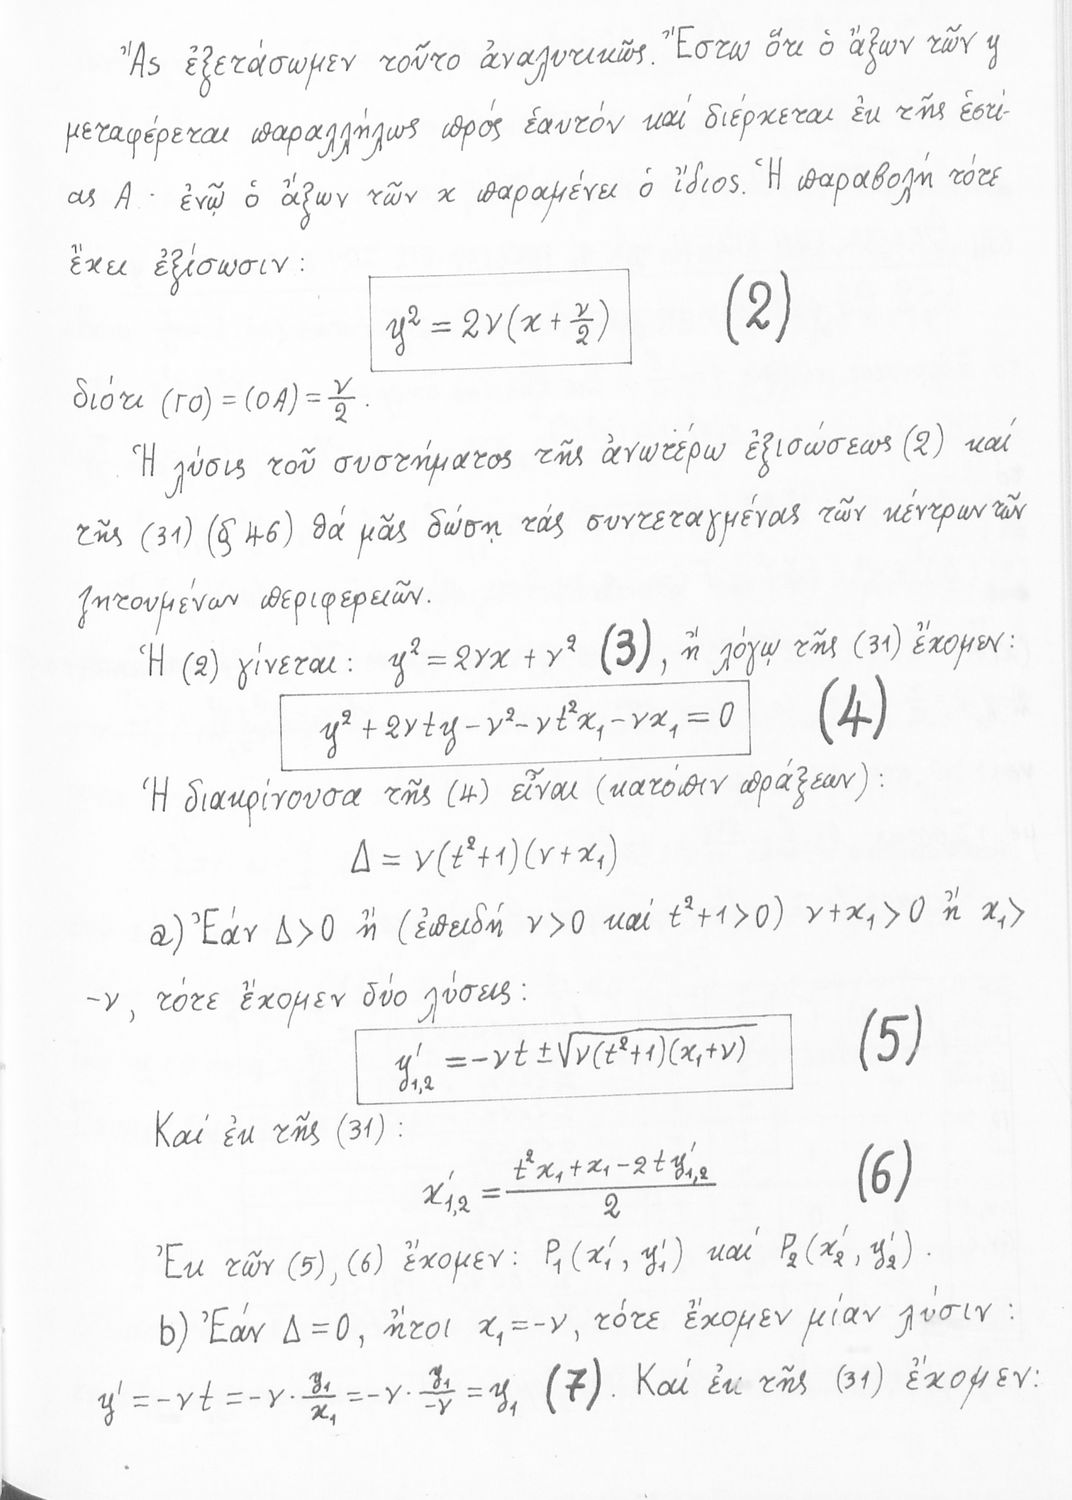 Ἄς ἐξετάσωμεν τοῦτο ἀναλυτικῶς. Ἔστω ὅτι ὁ ἄξων τῶν y
μεταφέρεται παραλλήλως πρός ἑαυτόν καί διέρχεται ἐκ τῆς ἑστί-
ας A · ἐνῷ ὁ ἄξων τῶν x παραμένει ὁ ἴδιος. Ἡ παραβολή τότε
ἔχει ἐξίσωσιν:
y² = 2ν(x + ν/2) (2)
διότι (ΓΟ) = (ΟΑ) = ν/2.
Ἡ λύσις τοῦ συστήματος τῆς ἀνωτέρω ἐξισώσεως (2) καί
τῆς (31) (§ 46) θά μᾶς δώσῃ τάς συντεταγμένας τῶν κέντρων τῶν
ζητουμένων περιφερειῶν.
Ἡ (2) γίνεται: y² = 2νx + ν² (3), ἤ λόγῳ τῆς (31) ἔχομεν:
y² + 2νty - ν² - νt²x₁ - νx₁ = 0 (4)
Ἡ διακρίνουσα τῆς (4) εἶναι (κατόπιν πράξεων):
Δ = ν(t²+1)(ν+x₁)
a) Ἐάν Δ>0 ἤ (ἐπειδή ν>0 καί t²+1>0) ν+x₁>0 ἤ x₁>
-ν, τότε ἔχομεν δύο λύσεις:
y′₁,₂ = -νt ± √ν(t²+1)(x₁+ν) (5)
Καί ἐκ τῆς (31):
x′₁,₂ = (t²x₁ + x₁ - 2ty′₁,₂)/2 (6)
Ἐκ τῶν (5), (6) ἔχομεν: P₁(x′₁, y′₁) καί P₂(x′₂, y′₂).
b) Ἐάν Δ = 0, ἤτοι x₁ = -ν, τότε ἔχομεν μίαν λύσιν:
y′ = -νt = -ν · y₁/x₁ = -ν · y₁/-ν = y₁ (7). Καί ἐκ τῆς (31) ἔχομεν: